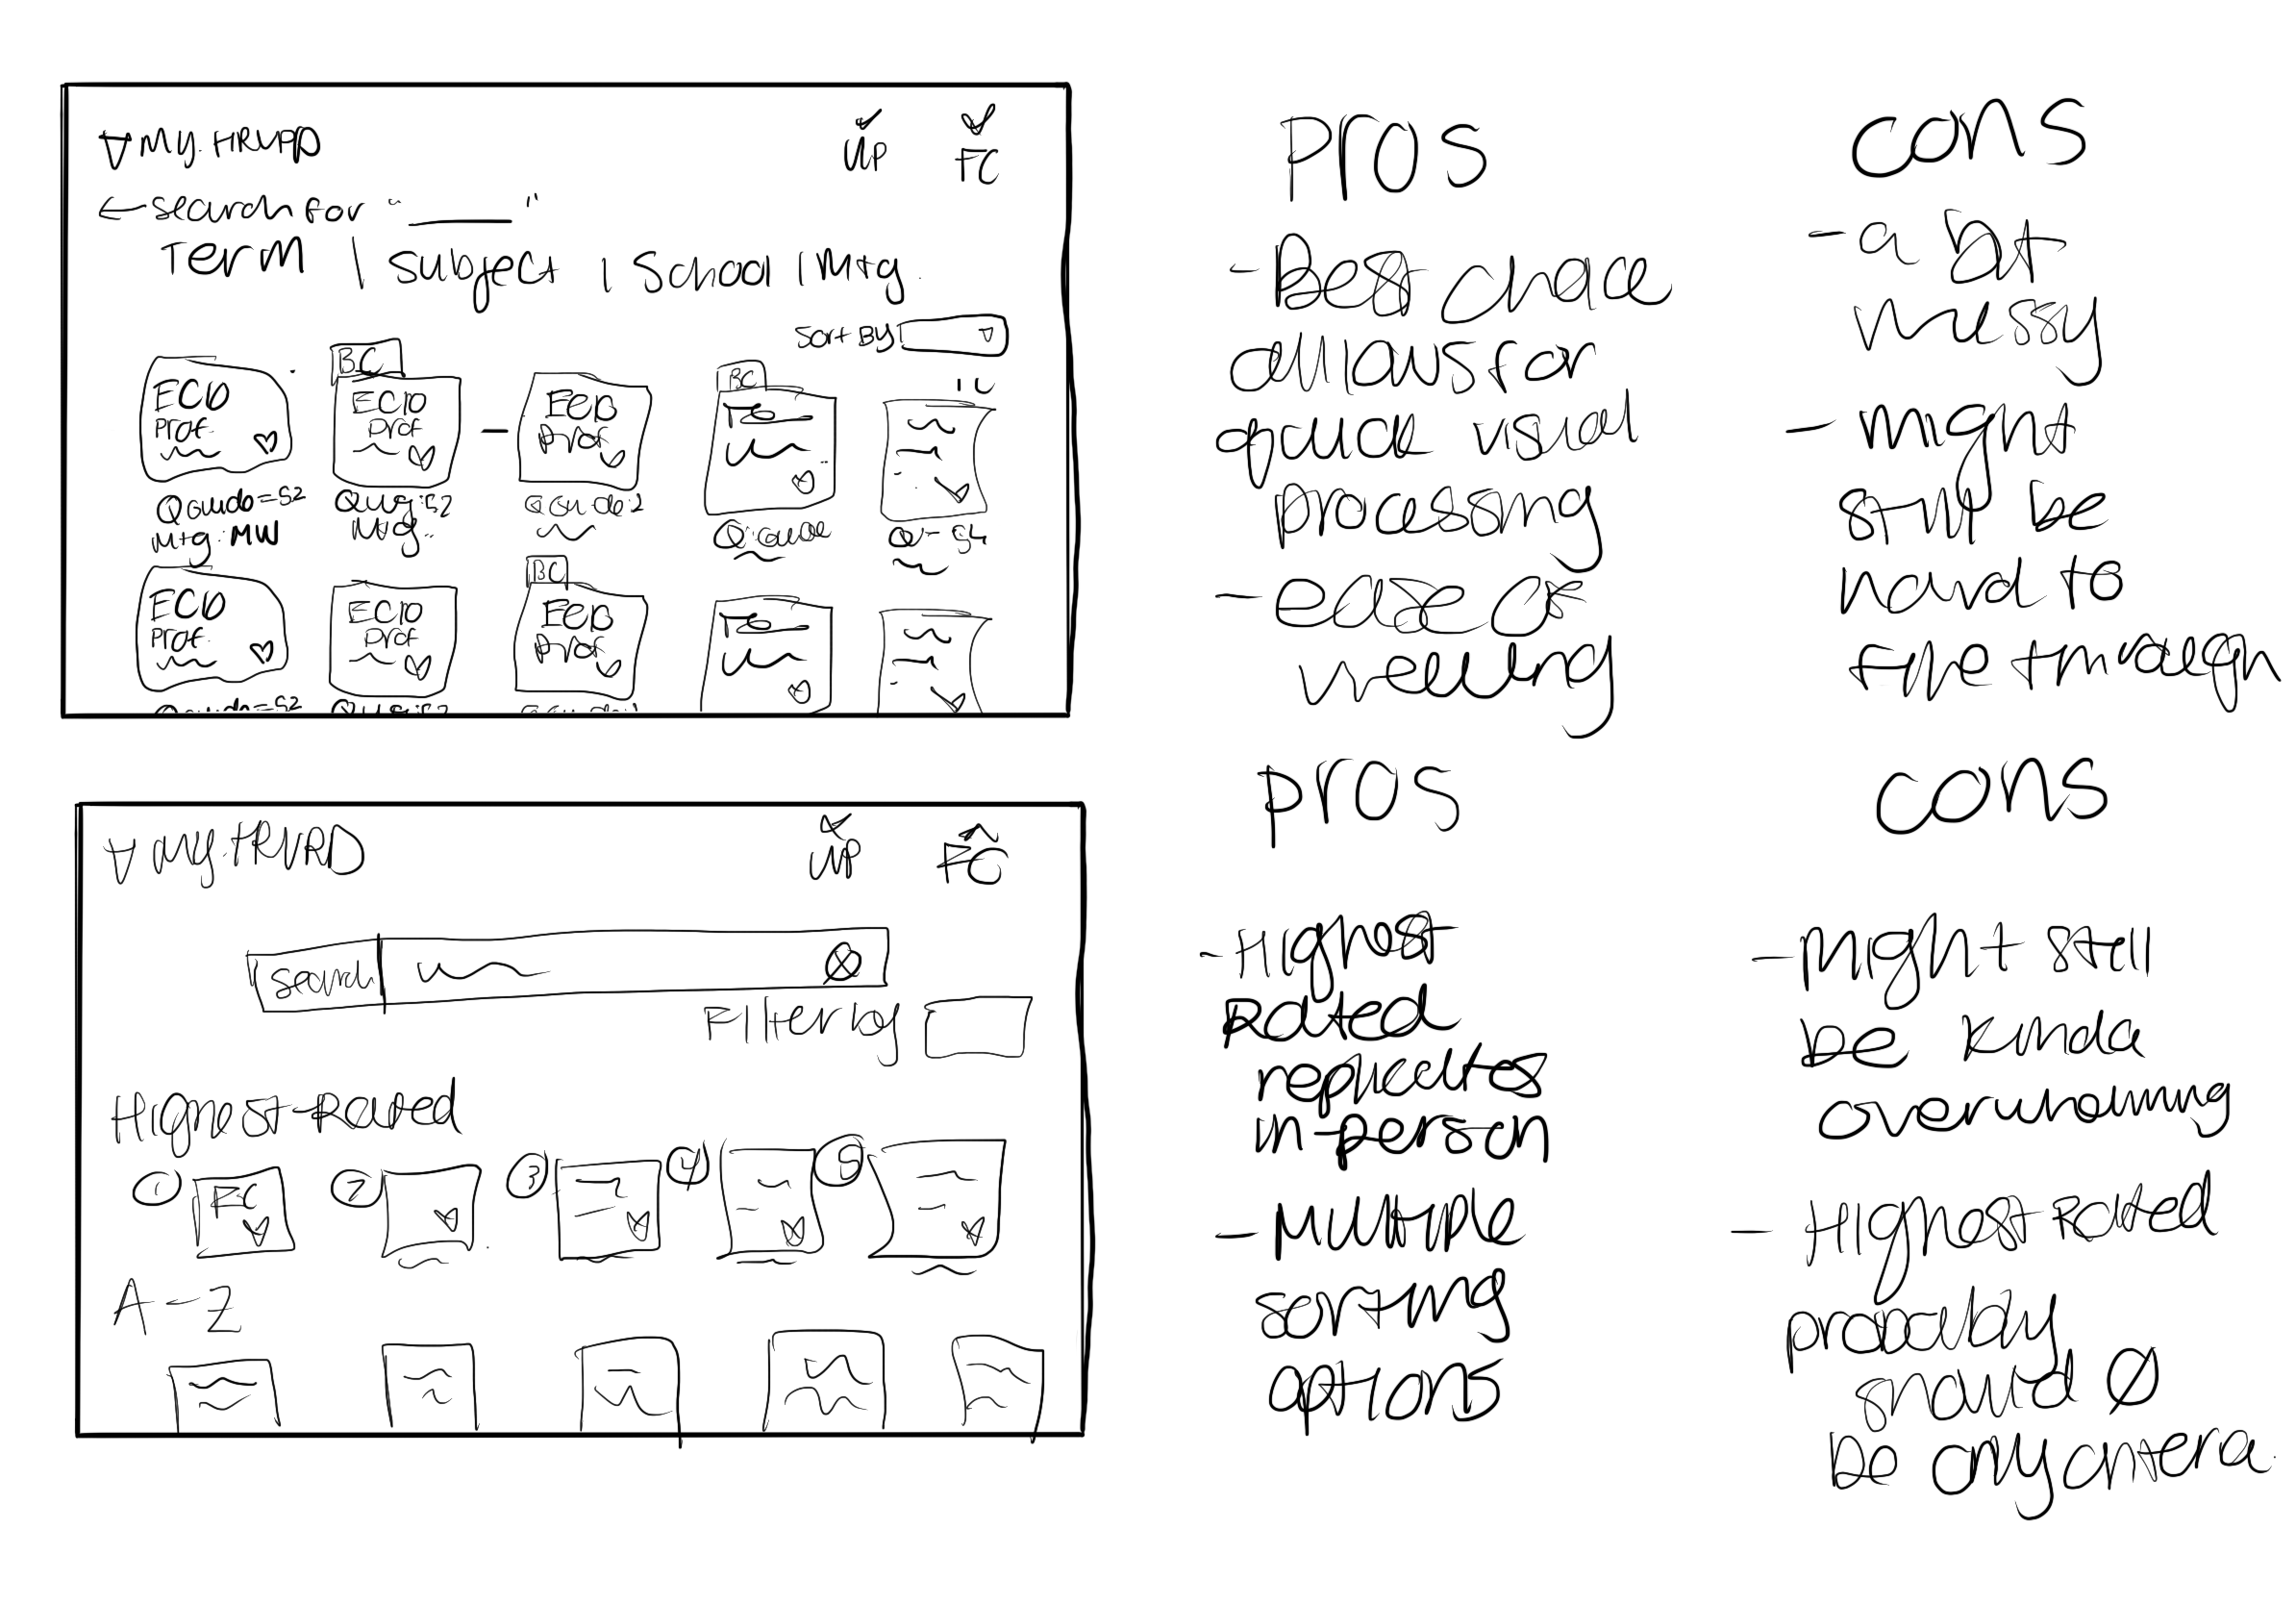 My.HRVRD
UP
FC
← search for "______"
Term | Subject | School | Mtg.
Sort By
BC
BC
EC10
Prof.
EC10
Prof
Prof
Mtg: MW
Mtg..
BC
EC10
Prof.
EC10
Prof
Prof
Pros
- Best choice
allows for
quick visual
processing
- ease of
viewing
cons
- a bit
messy
- might
still be
hard to
through
My.HRVRD
UP
FC
Search
Filter by
Highest-Rated
1
EC
2
3
4
5
A - Z
pros
- Highest
Rated
replicates
in-person
- Multiple
sorting
options
cons
- Might still
be kinda
overwhelming
- Highest-Rated
probably
should Ø
be only criteria.